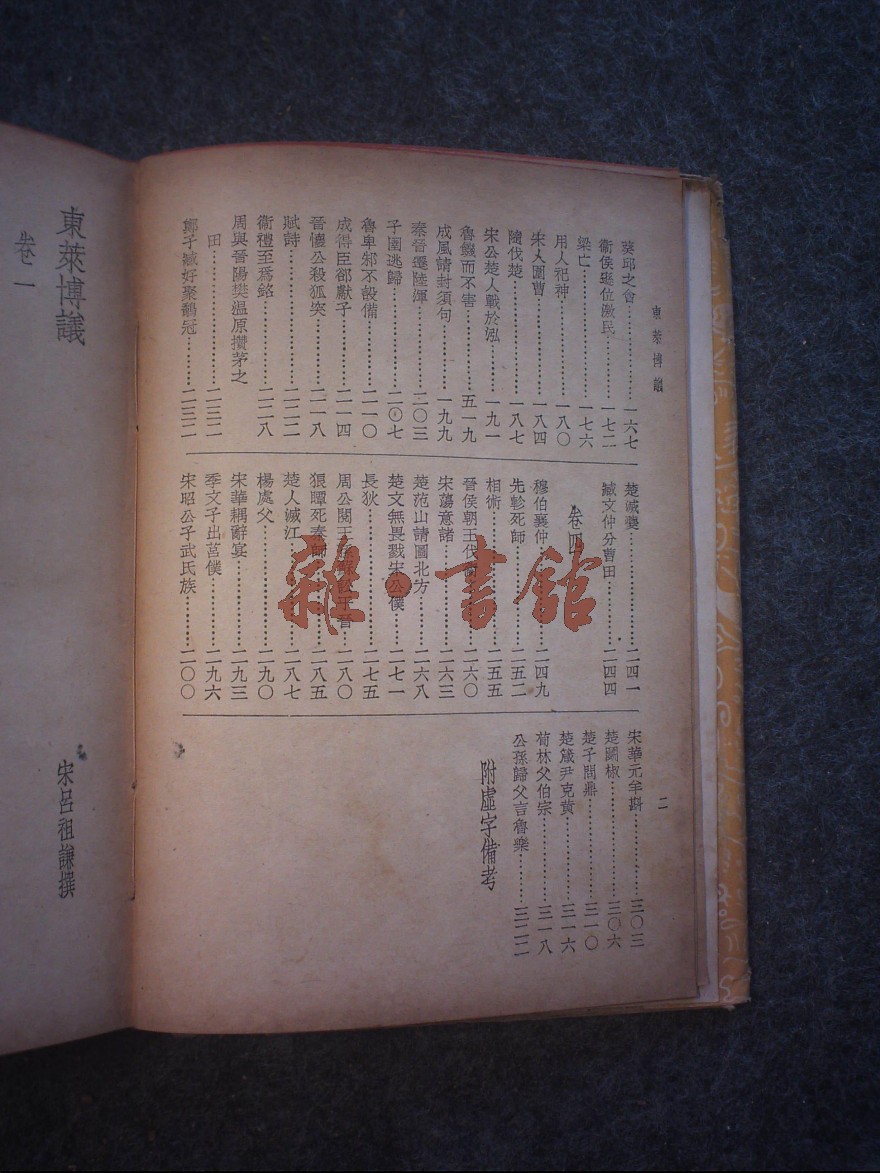 東萊博議
二
葵邱之會……一六七
衞侯遜位激民……一七二
梁亡……一七六
用人祀神……一八〇
宋人圍曹……一八四
隨伐楚……一八七
宋公楚人戰於泓……一九一
魯饑而不害……五一九
成風請封須句……一九九
秦晉遷陸渾……二〇三
子圉逃歸……二〇七
魯卑邾不設備……二一〇
成得臣郤獻子……二一四
晉懷公殺狐突……二一八
賦詩……二二二
衞禮至爲銘……二二八
周與晉陽樊溫原攢茅之
田……二三二
鄭子臧好聚鷸冠……二三二
楚滅夔……二四一
臧文仲分曹田……二四四
卷四
穆伯襄仲……二四九
先軫死師……二五二
相術……二五五
晉侯朝王伐……二六〇
宋蕩意諸……二六三
楚范山請圖北方……二六八
楚文無畏戮宋公僕……二七一
長狄……二七五
周公閱王……晉……二八〇
狼瞫死秦師……二八五
楚人滅江……二八七
楊處父……二九〇
宋華耦辭宴……二九三
季文子出莒僕……二九六
宋昭公子武氏族……二〇〇
宋華元羊斟……三〇三
楚鬭椒……三〇六
楚子問鼎……三一〇
楚箴尹克黄……三一六
荀林父伯宗……三一八
公孫歸父言魯樂……三二二
附虛字備考
東萊博議
卷一
宋呂祖謙撰
雜·書館